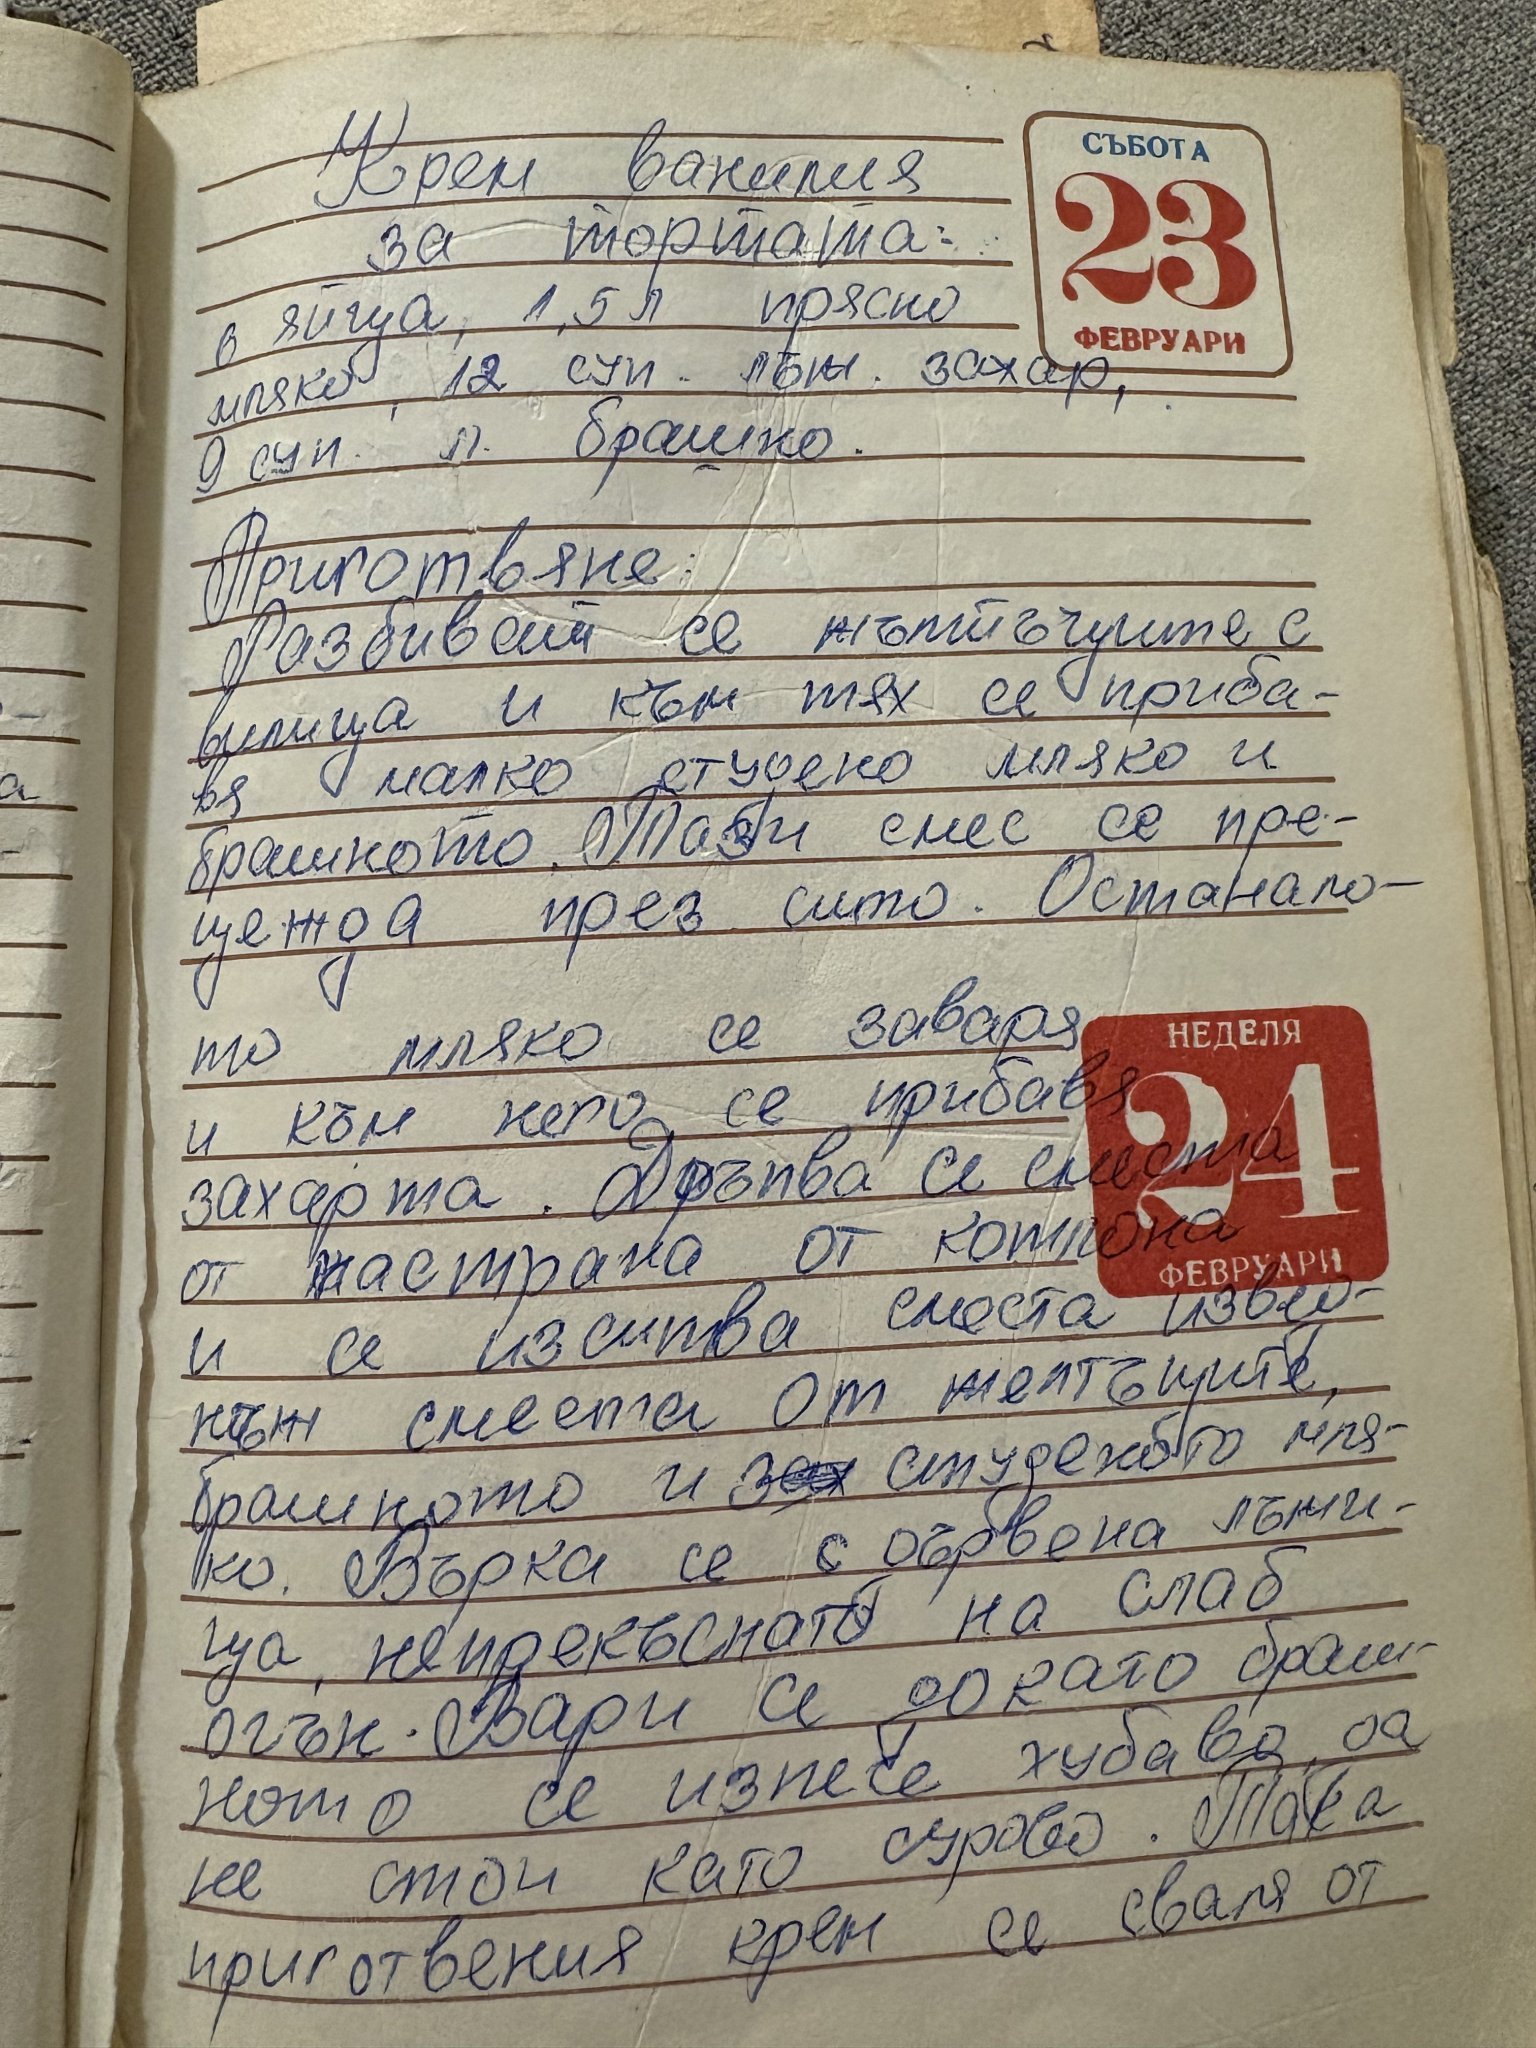 СЪБОТА
23
ФЕВРУАРИ
Крем ванилия
за тортата:
6 яйца, 1,5 л прясно
мляко, 12 суп. лъж. захар,
9 суп. л. брашно.
Приготвяне:
Разбиват се жълтъците с
вилица и към тях се приба-
вя малко студено мляко и
брашното. Тази смес се пре-
цежда през сито. Останало-
НЕДЕЛЯ
24
ФЕВРУАРИ
то мляко се заваря
и към него се прибавя
захарта. Дръпва се сместа
от настрана от котлона
и се изсипва сместа извед-
нъж сместа от желтъците,
брашното и студеното мля-
ко. Бърка се с дървена лъжи-
ца, непрекъснато на слаб
огън. Вари се докато браш-
ното се изпече хубаво, да
не стои като сурово. Така
приготвения крем се сваля от
а